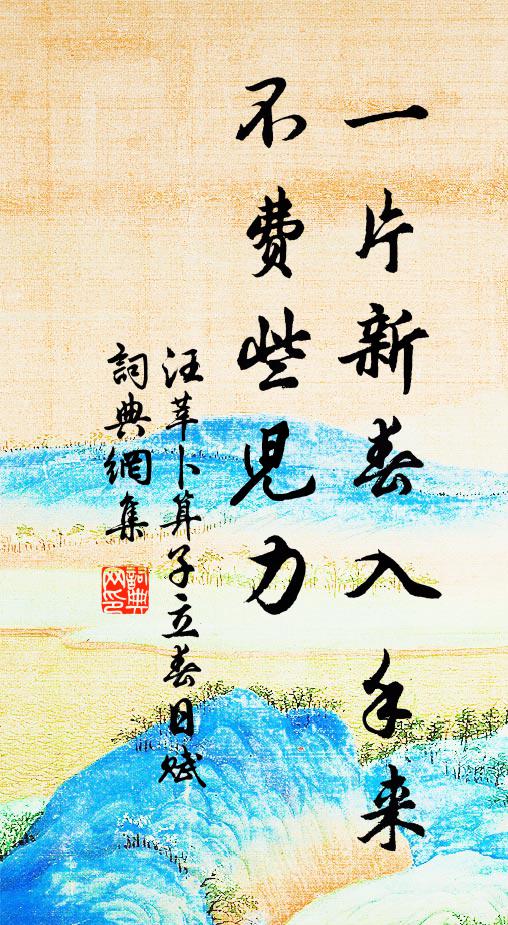 一片新春入手来
不费些儿力
汪莘卜算子立春日赋
詞典網集
詞典网印